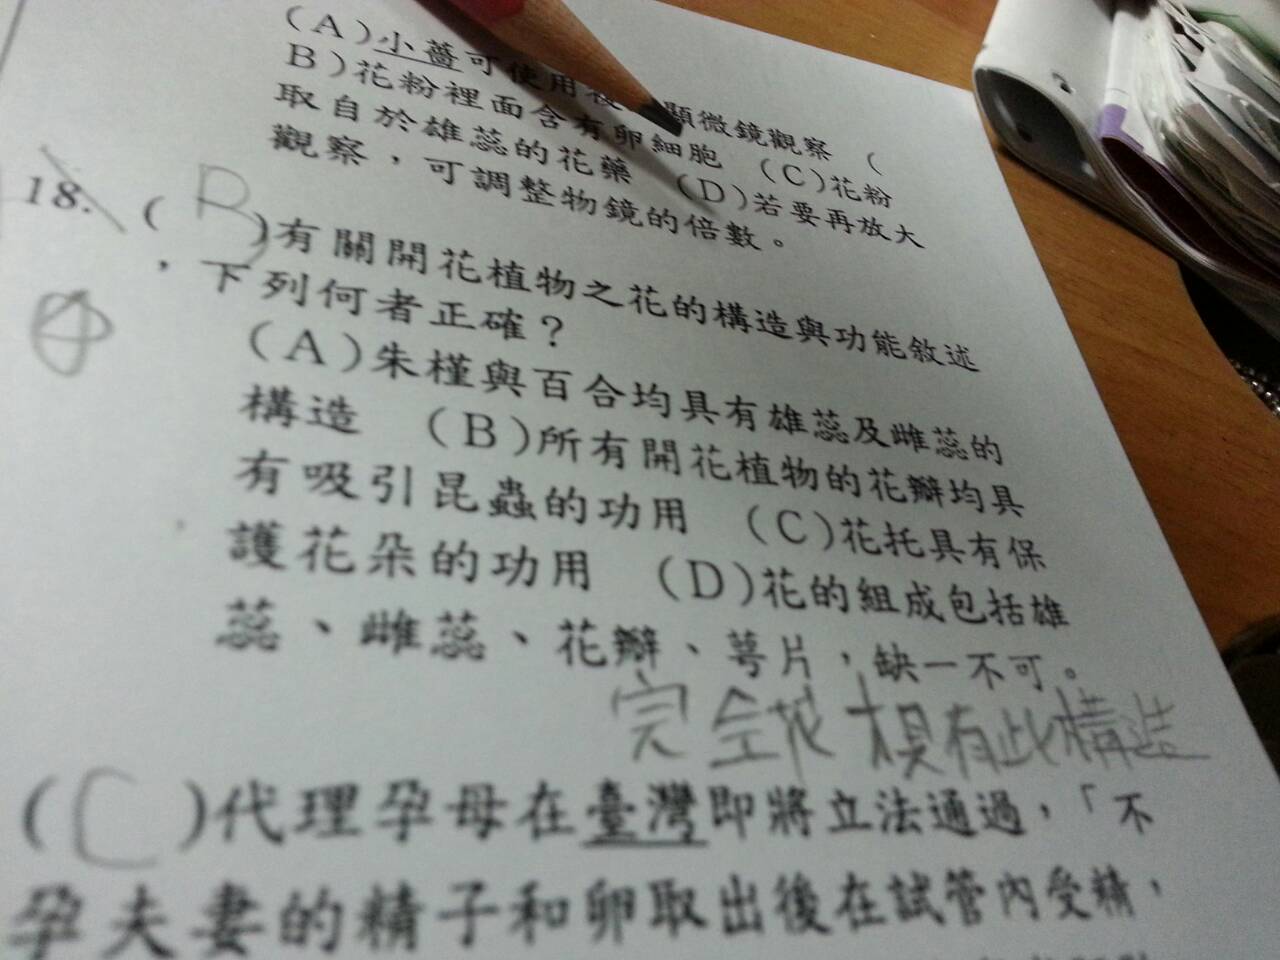 (A)小薔可使用複 顯微鏡觀察 (
B)花粉裡面含有卵細胞 (C)花粉
取自於雄蕊的花藥 (D)若要再放大
觀察，可調整物鏡的倍數。
18. ( )有關開花植物之花的構造與功能敘述
，下列何者正確？
(A)朱槿與百合均具有雄蕊及雌蕊的
構造 (B)所有開花植物的花瓣均具
有吸引昆蟲的功用 (C)花托具有保
護花朵的功用 (D)花的組成包括雄
蕊、雌蕊、花瓣、萼片，缺一不可。
完全花才具有此構造
(C)代理孕母在臺灣即將立法通過，「不
孕夫妻的精子和卵取出後在試管內受精，